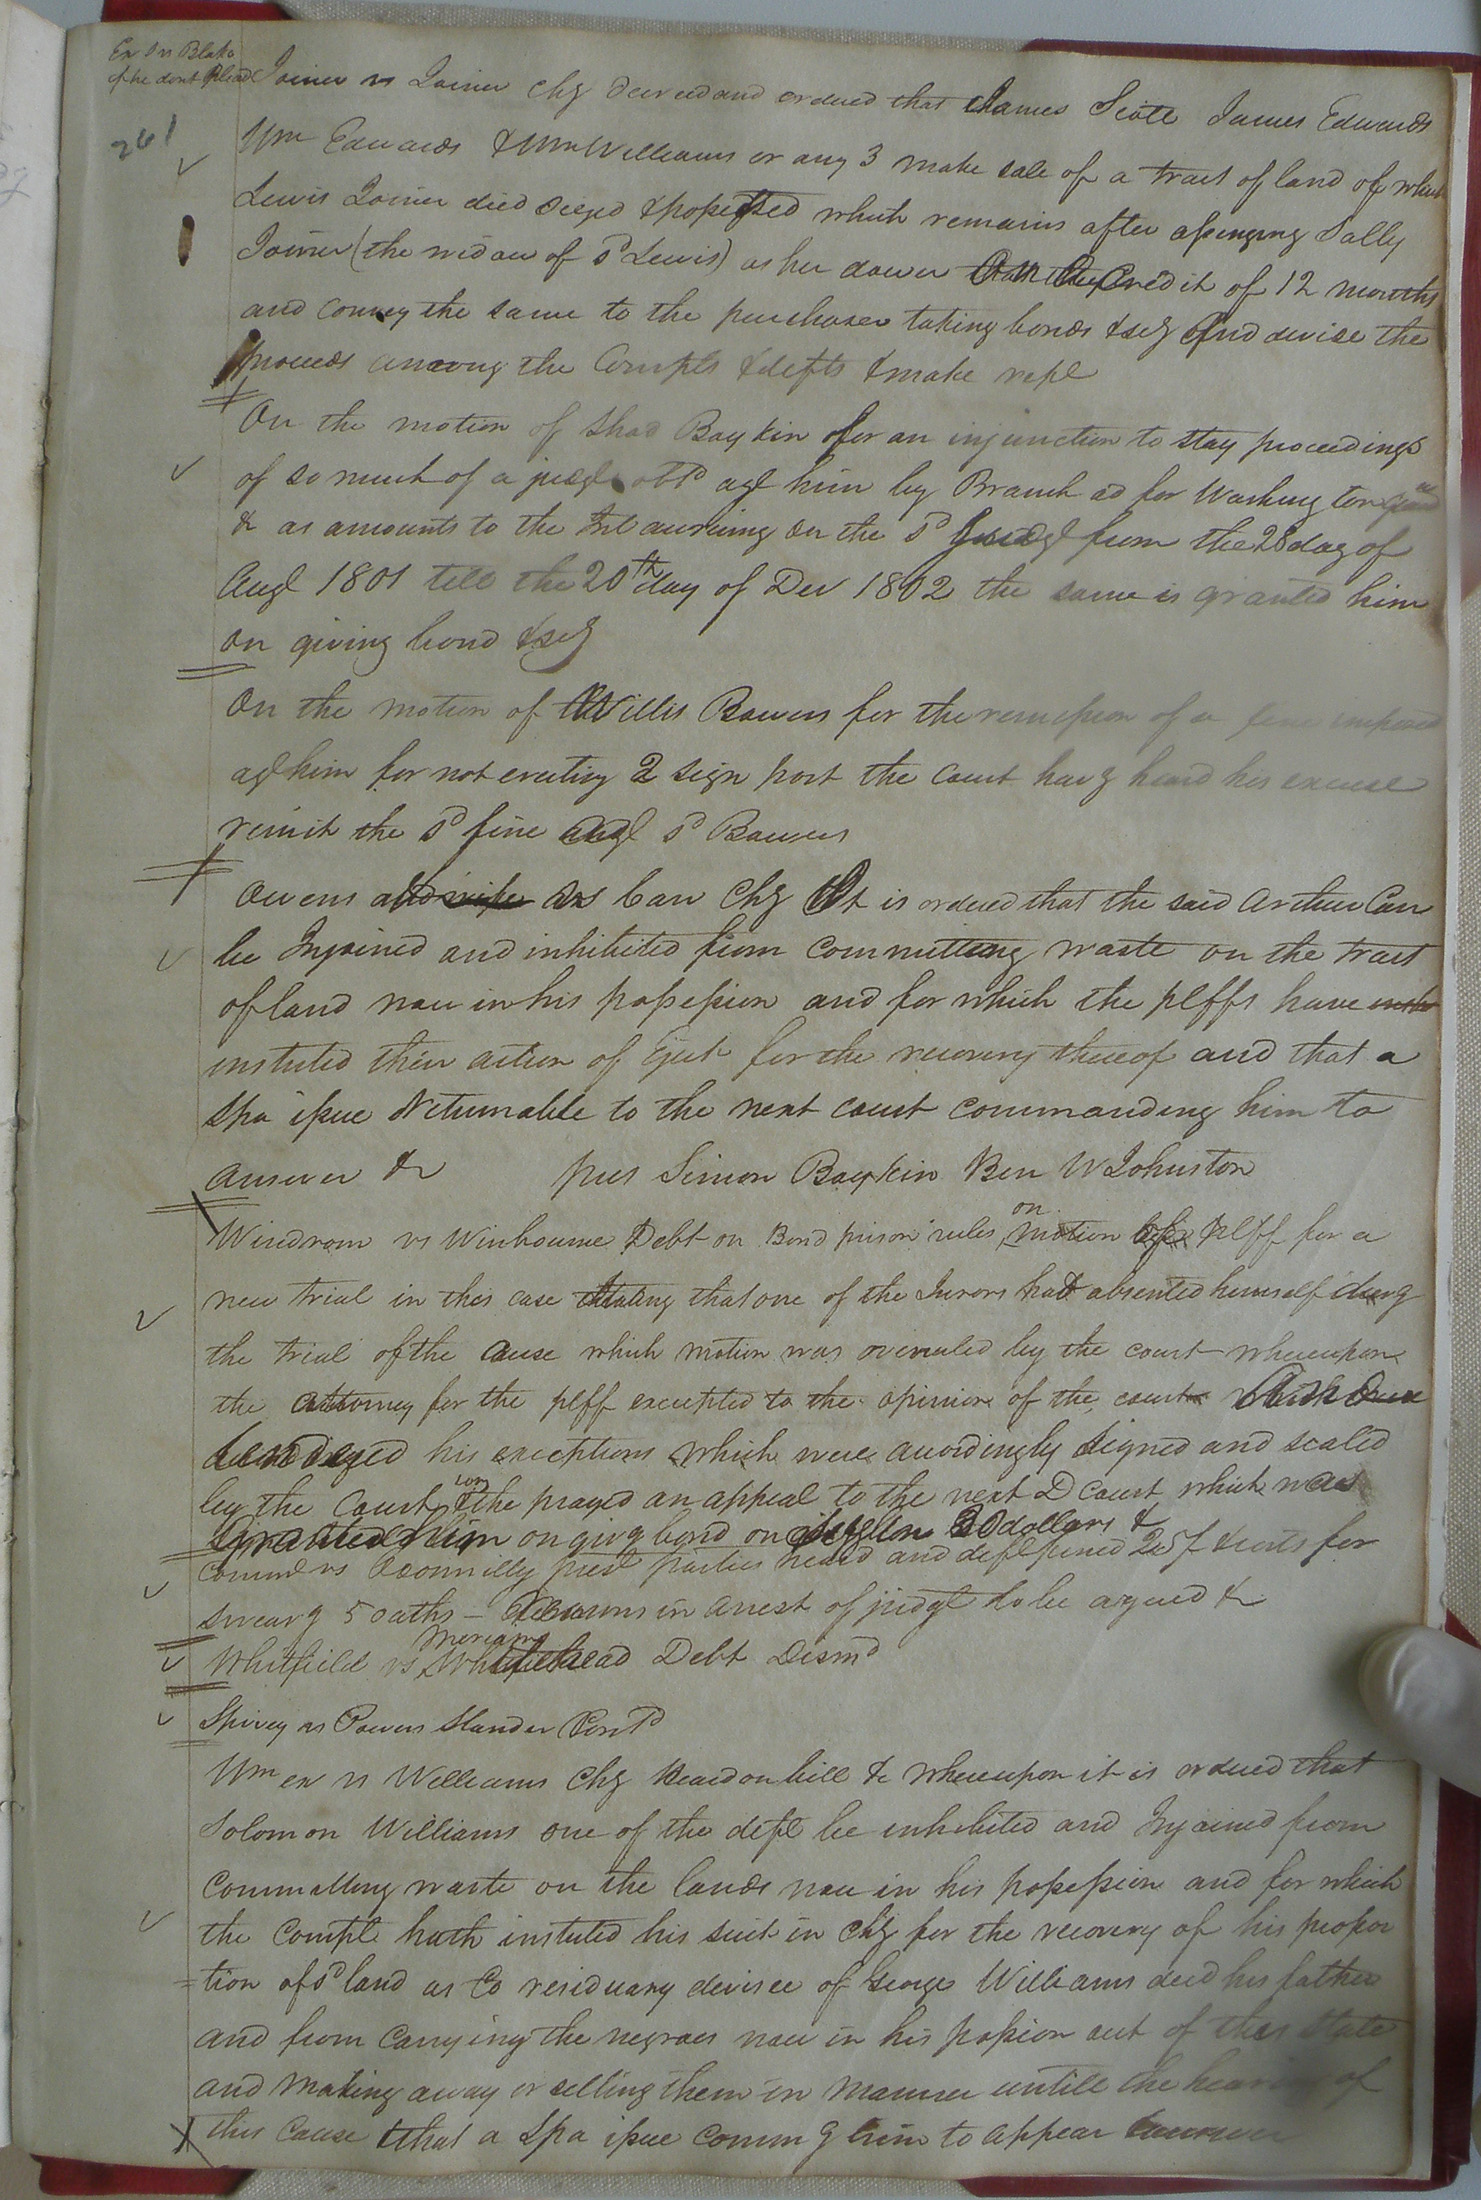 Ex on Blake
if he dont plead
Joiner vs Joiner Chy decreed and ordered that James Scott James Edwards
261
Wm Edwards & Wm Williams or any 3 make sale of a tract of land of which
Lewis Joiner died seized & possessed which remains after assigning Sally
Joiner (the widow of sd Lewis) as her dower on the Credit of 12 months
and convey the same to the purchaser taking bonds & scy and devise the
proceeds among the Complts & defts & make rept
On the motion of Shad Baykin for an injunction to stay proceedings
of so much of a judgt obtd agt him by Branch ad for Washington
& as amounts to the Int accruing on the sd Judgt from the 28 day of
Augt 1801 till the 20th day of Der 1802 the same is granted him
on giving bond & scy
On the motion of Willis Bowers for the remission of a fine imposed
agt him for not erecting 2 sign post the Court havg heard his excuse
remit the sd fine agt sd Bowers
Owens and wife vs Carr Chy It is ordered that the said Arthur Carr
be Injoined and inhibited from committing waste on the tract
of land now in his possession and for which the plffs have
instuted their action of Eject for the recovery thereof and that a
Spa issue Returnable to the next court commanding him to
answer &c pres Simon Baykin Ben W Johnston
Windrom vs Winbourne Debt on Bond prison rules on motion of plff for a
new trial in this case stating that one of the Jurors had absented himself durg
the trial of the cause which motion was overruled by the court whereupon
the attorney for the plff excepted to the opinion of the court
tendered his exceptions which were accordingly signed and sealed
by the Court & he prayed an appeal to the next D Court which was
granted him on givg bond 30 dollars &
Commd vs Connilly pres parties heard and deft fined & costs for
swearg 5 oaths – Reasons in arrest of judgt to be argued &c
Whitfield vs Meriam Whitehead Debt Dismd
Spivey vs Powers Slander Contd
Wms ex vs Williams Chy Heard on bill &c whereupon it is ordered that
Solomon Williams one of the deft be inhibited and Injoined from
committing waste on the lands now in his possession and for which
the Complt hath instuted his suit in Chy for the recovery of his propor
=tion of sd land as Co residuary devisee of George Williams decd his father
and from Carrying the negroes now in his possion out of this State
and making away or selling them in manner untill the hearing of
this Cause & that a Spa issue commg him to appear